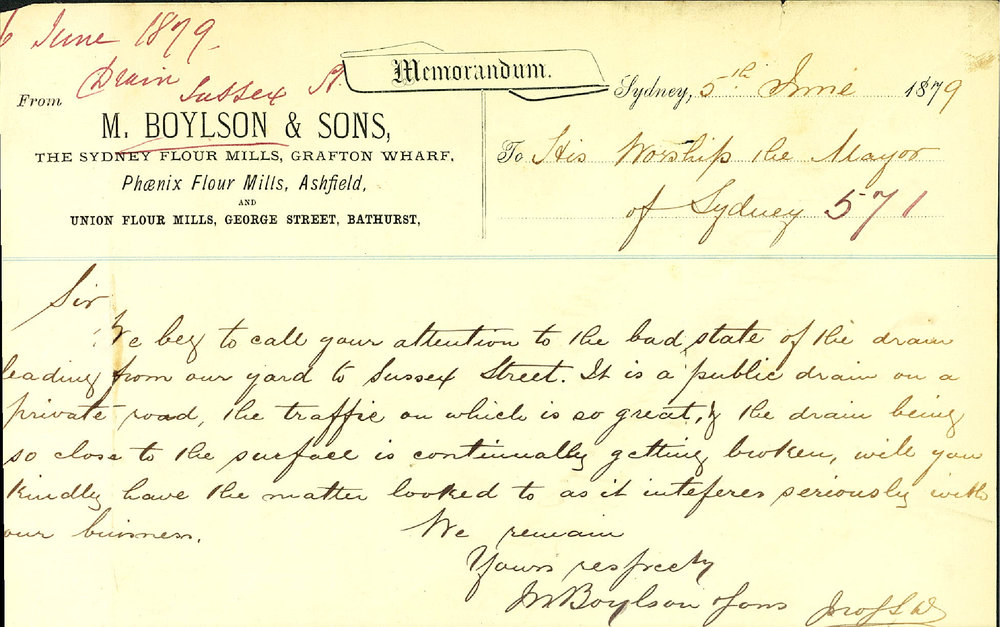 6 June 1879
Drain
Sussex St.
Memorandum.
Sydney, 5th June 1879
From
M. BOYLSON & SONS,
THE SYDNEY FLOUR MILLS, GRAFTON WHARF,
Phœnix Flour Mills, Ashfield,
AND
UNION FLOUR MILLS, GEORGE STREET, BATHURST,
To His Worship the Mayor
of Sydney 571
Sir
We beg to call your attention to the bad state of the drain
leading from our yard to Sussex Street. It is a public drain on a
private road, the traffic on which is so great, & the drain being
so close to the surface is continually getting broken, will you
kindly have the matter looked to as it inteferes seriously with
our business.
We remain
Yours respectly
M Boylson & Sons